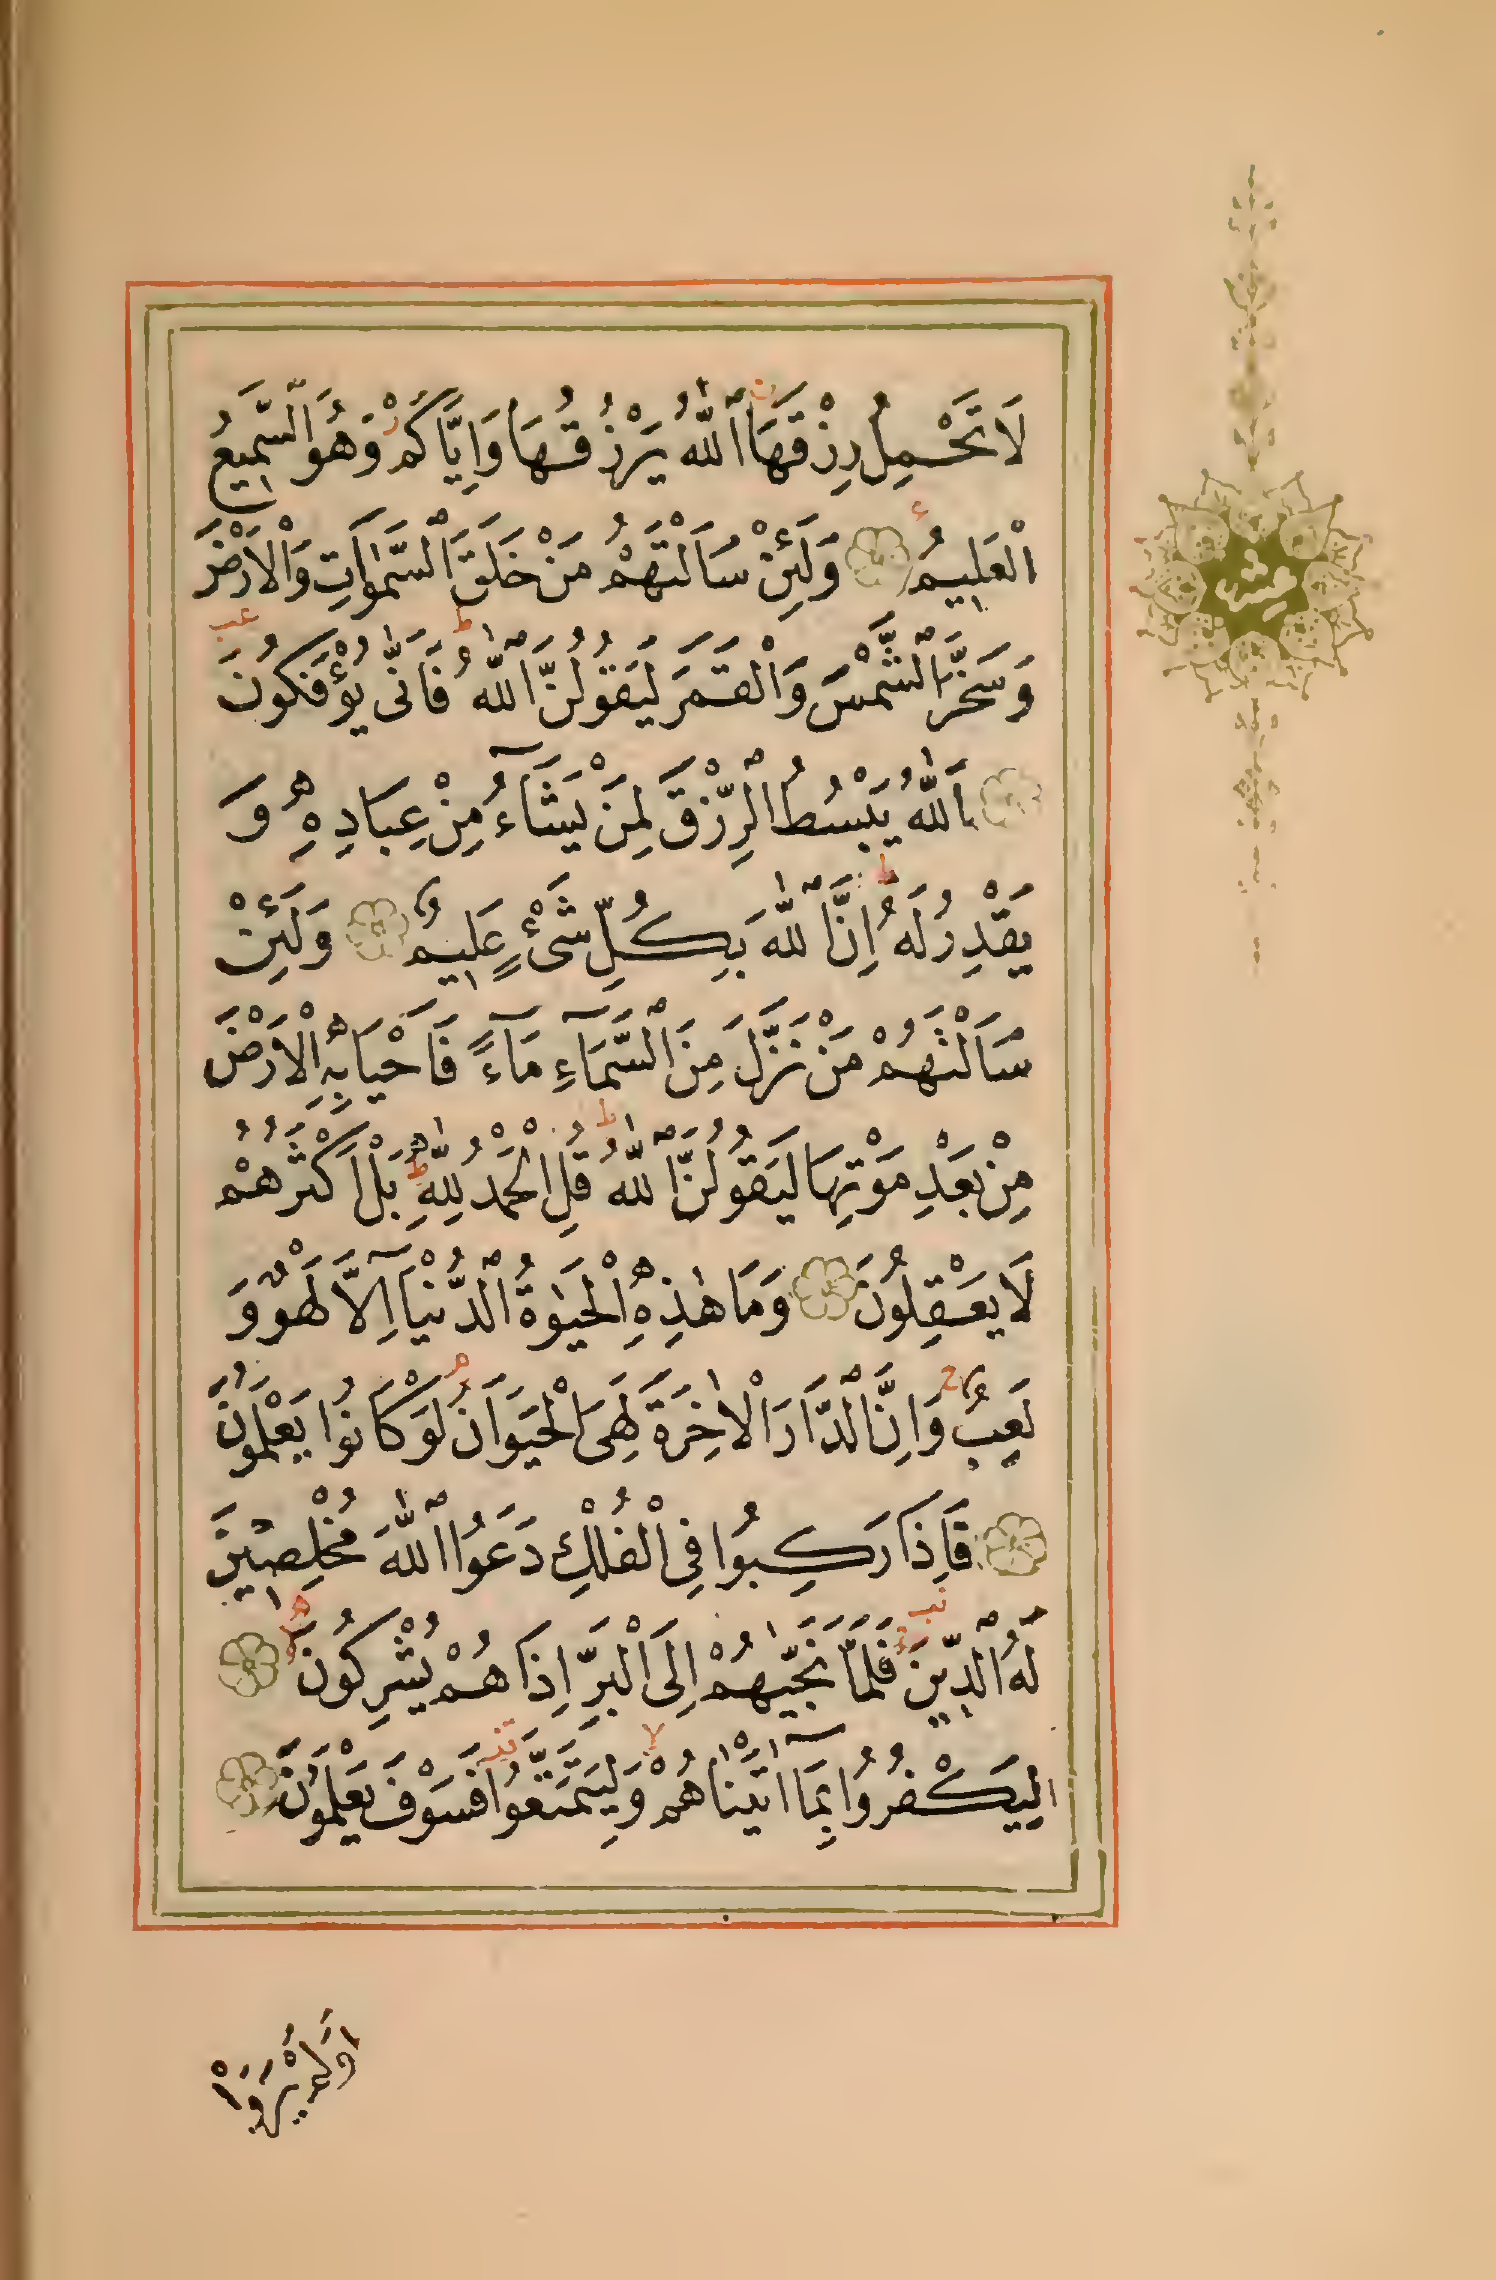 لَا تَحْمِلُ رِزْقَهَا اَللّٰهُ يَرْزُقُهَا وَاِيَّاكُمْ وَهُوَ السَّمِيعُ
الْعَلِيمُ وَلَئِنْ سَاَلْتَهُمْ مَنْ خَلَقَ السَّمٰوَاتِ وَالْاَرْضَ
وَسَخَّرَ الشَّمْسَ وَالْقَمَرَ لَيَقُولُنَّ اللّٰهُ فَاَنّٰى يُؤْفَكُونَ
اَللّٰهُ يَبْسُطُ الرِّزْقَ لِمَنْ يَشَٓاءُ مِنْ عِبَادِهِ وَ
يَقْدِرُ لَهُ اِنَّ اللّٰهَ بِكُلِّ شَيْءٍ عَلِيمٌ وَلَئِنْ
سَاَلْتَهُمْ مَنْ نَزَّلَ مِنَ السَّمَٓاءِ مَٓاءً فَاَحْيَا بِهِ الْاَرْضَ
مِنْ بَعْدِ مَوْتِهَا لَيَقُولُنَّ اللّٰهُ قُلِ الْحَمْدُ لِلّٰهِ بَلْ اَكْثَرُهُمْ
لَا يَعْقِلُونَ وَمَا هٰذِهِ الْحَيٰوةُ الدُّنْيَٓا اِلَّا لَهْوٌ وَ
لَعِبٌ وَاِنَّ الدَّارَ الْاٰخِرَةَ لَهِيَ الْحَيَوَانُ لَوْ كَانُوا يَعْلَمُونَ
فَاِذَا رَكِبُوا فِي الْفُلْكِ دَعَوُا اللّٰهَ مُخْلِصِينَ
لَهُ الدِّينَ فَلَمَّا نَجّٰيهُمْ اِلَى الْبَرِّ اِذَا هُمْ يُشْرِكُونَ
لِيَكْفُرُوا بِمَٓا اٰتَيْنَاهُمْ وَلِيَتَمَتَّعُوا فَسَوْفَ يَعْلَمُونَ
اَوَلَمْ يَرَوْا